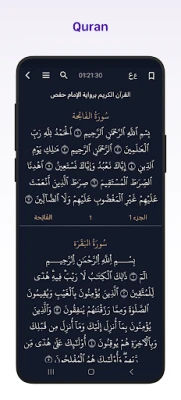 Quran
01:21:30
ع‌ع
القرآن الكريم برواية الإمام حفص
سُورَةُ الفَاتِحَة
بِسْمِ اللَّهِ الرَّحْمَٰنِ الرَّحِيمِ ۝١ الْحَمْدُ لِلَّهِ رَبِّ
الْعَالَمِينَ ۝٢ الرَّحْمَٰنِ الرَّحِيمِ ۝٣ مَالِكِ يَوْمِ
الدِّينِ ۝٤ إِيَّاكَ نَعْبُدُ وَإِيَّاكَ نَسْتَعِينُ ۝٥ اهْدِنَا
الصِّرَاطَ الْمُسْتَقِيمَ ۝٦ صِرَاطَ الَّذِينَ أَنْعَمْتَ
عَلَيْهِمْ غَيْرِ الْمَغْضُوبِ عَلَيْهِمْ وَلَا الضَّالِّينَ ۝٧
الجزء 1 1 الفَاتِحَة
سُورَةُ البَقَرَة
بِسْمِ اللَّهِ الرَّحْمَٰنِ الرَّحِيمِ
الٓمٓ ۝١ ذَٰلِكَ الْكِتَابُ لَا رَيْبَ فِيهِ هُدًى
لِّلْمُتَّقِينَ ۝٢ الَّذِينَ يُؤْمِنُونَ بِالْغَيْبِ وَيُقِيمُونَ
الصَّلَوٰةَ وَمِمَّا رَزَقْنَاهُمْ يُنفِقُونَ ۝٣ وَالَّذِينَ
يُؤْمِنُونَ بِمَا أُنزِلَ إِلَيْكَ وَمَا أُنزِلَ مِن قَبْلِكَ
وَبِالْآخِرَةِ هُمْ يُوقِنُونَ ۝٤ أُولَٰئِكَ عَلَىٰ هُدًى مِّن
رَّبِّهِمْ وَأُولَٰئِكَ هُمُ الْمُفْلِحُونَ ۝٥